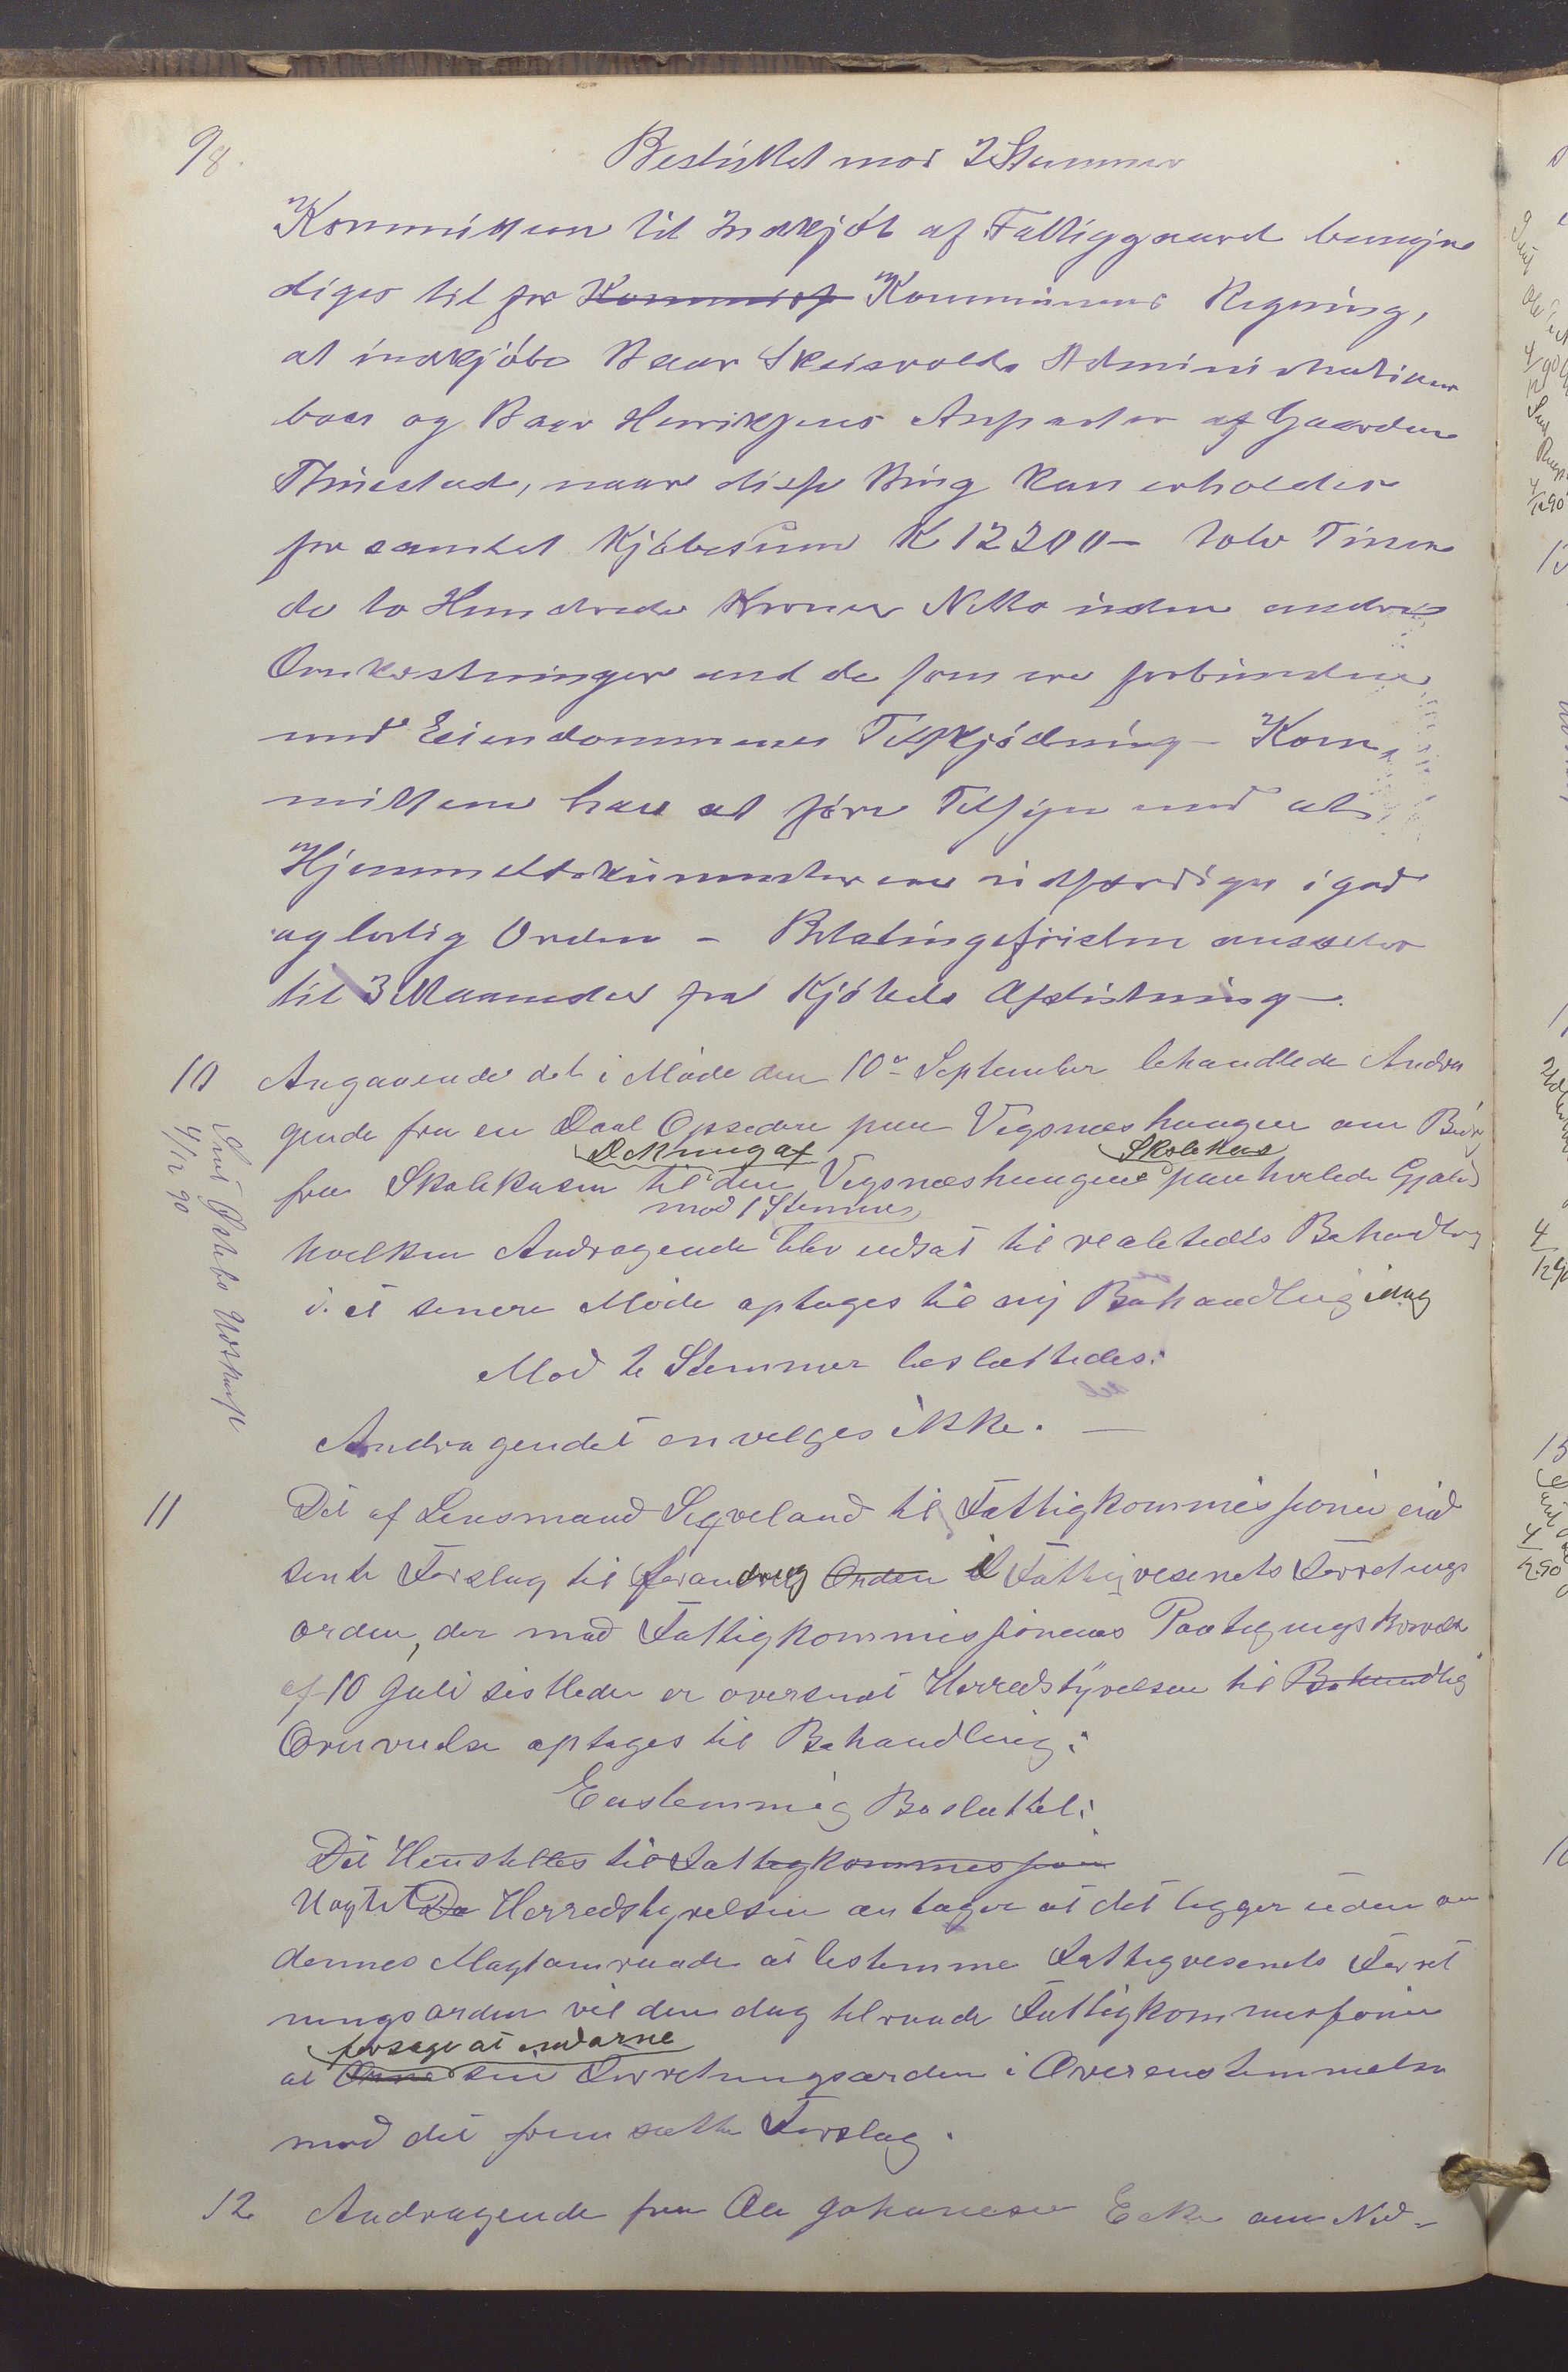 98.
Besluttet mod 2 Stemmer
Kommitteen til Indkjøb af Fattiggaard bemyn
diges til for Kommisf Kommunens Regning,
at indkjøbe Baar Skeisvolds Administrations
boes og Baar Henriksens Anparter af Gaarden
Thuestad, naar disse Brug kan erholdes
for samlet Kjøbesum K 12200 - tolv Tusen
de to Hundrede Kroner Netto uden andre
Omkostninger end de som ere forbundne
med Eiendommenes Tilskjødning - Kom-
mitteen har at føre Tilsyn med at
Hjemmelsdokumenter ere udfærdiges i god
og lovlig Orden - Betalingsfristen ansættes
til 3 Maaneder fra Kjøbets Afslutning -.
10 Angaaende det i Møde den 10de September behandlede Andra
gende fra en Deel Opsedere paa Vegsneshaugen om Bidr
Dekning af Skolehus
fra Skolekasen til den Vegsneshaugens paahvilede Gjæld
mod 1 Stemme
hvilken Andragende blev udsat til realitedts Behandling
i et senere Møde optages til ny Behandling idag
Mod to Stemmer besluttedes:
Andragendet envelges ikke. -
Sent Udskrift
4/12 90
11 Det af Lensmand Sigveland til Fattigkommissionen ind
sente Forslag til forandring Orden i Fattigvesenets Forretnings
orden, der med Fattigkommissionens Paategning
af 10 Juli sistleden er oversendt Herredstyrelsen til Behandlig
Overveielse optages til Behandling:
Enstemmig Besluttet:
Det Henstilles til Fattigkommissjon
Uagtet Da Herredstyrelsen antager at det ligger uden om
dennes Magtomraade at bestemme Fattigvesenets Forret
ningsorden vil den dog tilraade Fattigkommissionen
forsøge at indordne
at Orne sin Forretningsorden i Overenstemmelse
med det fremsatte Forslag.
12 Andragende fra Ole Johanesen Eike om Ned-